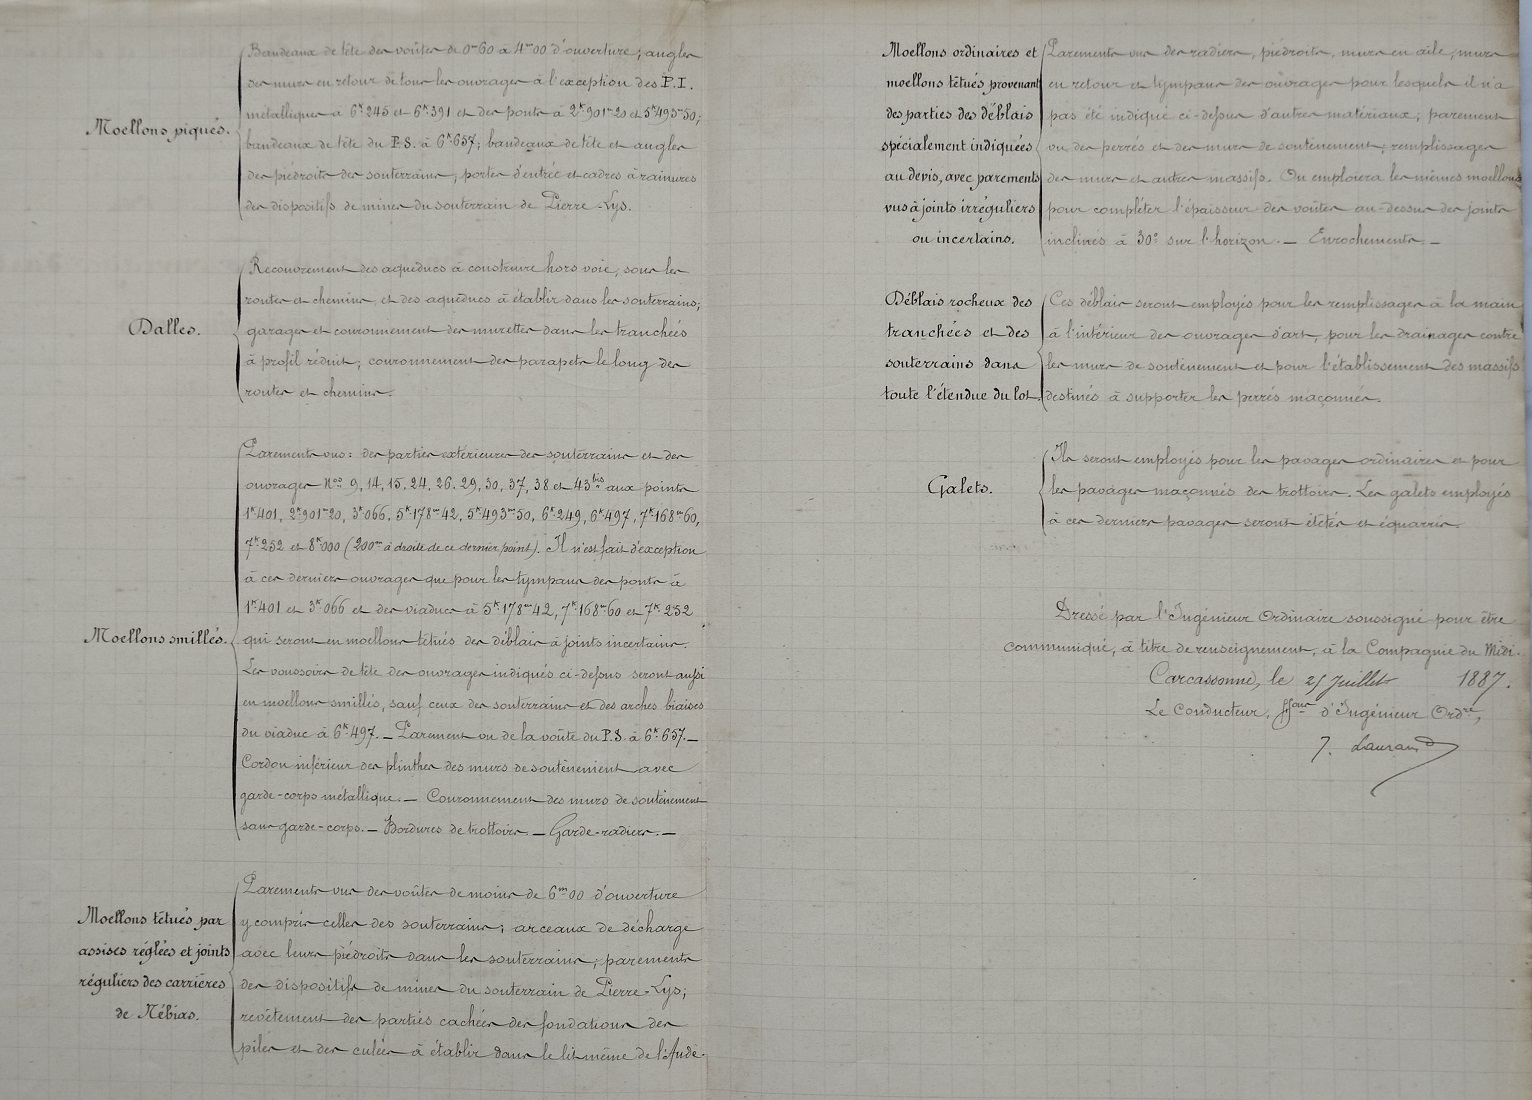 Moellons piqués.
Bandeaux de tête des voûtes de 0m60 à 4m00 d'ouverture; angles
des murs en retour de tous les ouvrages à l'exception des P.I.
métalliques à 6k245 et 6k391 et des ponts à 2k901m20 et 5k493m50;
bandeaux de tête du P.S. à 6k657; bandeaux de tête et angles
des piédroits des souterrains; portes d'entrée et cadres à rainures
des dispositifs de mines du souterrain de Pierre-Lys.
Dalles.
Recouvrement des aqueducs à construire hors voie, sous les
routes et chemins, et des aqueducs à établir dans les souterrains;
garages et couronnement des murettes dans les tranchées
à profil réduit; couronnement des parapets le long des
routes et chemins.
Moellons smillés.
Parements vus: des parties extérieures des souterrains et des
ouvrages Nos 9, 14, 15, 24, 26, 29, 30, 37, 38 et 43bis aux points
1k401, 2k901m20, 3k066, 5k178m42, 5k493m50, 6k249, 6k497, 7k168m60,
7k252 et 8k000 (200m à droite de ce dernier point). Il n'est fait d'exception
à ces derniers ouvrages que pour les tympans des ponts à
1k401 et 3k066 et des viaducs à 5k178m42, 7k168m60 et 7k252
qui seront en moellons têtués des déblais à joints incertains.
Les voussoirs de tête des ouvrages indiqués ci-dessus seront aussi
en moellons smillés, sauf ceux des souterrains et des arches biaises
du viaduc à 6k497. _ Parement vu de la voûte du P.S. à 6k657. _
Cordon inférieur des plinthes des murs de soutènement avec
garde-corps métallique. _ Couronnement des murs de soutènement
sans garde-corps. _ Bordures de trottoirs. _ Garde-radiers. _
Moellons têtués par
assises réglées et joints
réguliers des carrières
de Nébias.
Parements vus des voûtes de moins de 6m00 d'ouverture
y compris celles des souterrains; arceaux de décharge
avec leurs piédroits dans les souterrains; parements
des dispositifs de mines du souterrain de Pierre-Lys;
revêtement des parties cachées des fondations des
piles et des culées à établir dans le lit même de l'Aude.
Moellons ordinaires et
moellons têtués provenant
des parties des déblais
spécialement indiquées
au devis, avec parements
vus à joints irréguliers
ou incertains.
Parements vus des radiers, piédroits, murs en aile, murs
en retour et tympans des ouvrages pour lesquels il n'a
pas été indiqué ci-dessus d'autres matériaux; parement
vu des perrés et des murs de soutènement; remplissages
des murs et autres massifs. On emploiera les mêmes moellons
pour compléter l'épaisseur des voûtes au-dessus des joints
inclinés à 30° sur l'horizon. _ Enrochements. _
Déblais rocheux des
tranchées et des
souterrains dans
toute l'étendue du lot.
Ces déblais seront employés pour les remplissages à la main
à l'intérieur des ouvrages d'art, pour les drainages contre
les murs de soutènement et pour l'établissement des massifs
destinés à supporter les perrés maçonnés.
Galets.
Ils seront employés pour les pavages ordinaires et pour
les pavages maçonnés des trottoirs. Les galets employés
à ces derniers pavages seront étêtés et équarris.
Dressé par l'Ingénieur Ordinaire soussigné pour être
communiqué, à titre de renseignement, à la Compagnie du Midi.
Carcassonne, le 25 Juillet 1887.
Le Conducteur, ffons d'Ingénieur Ordre,